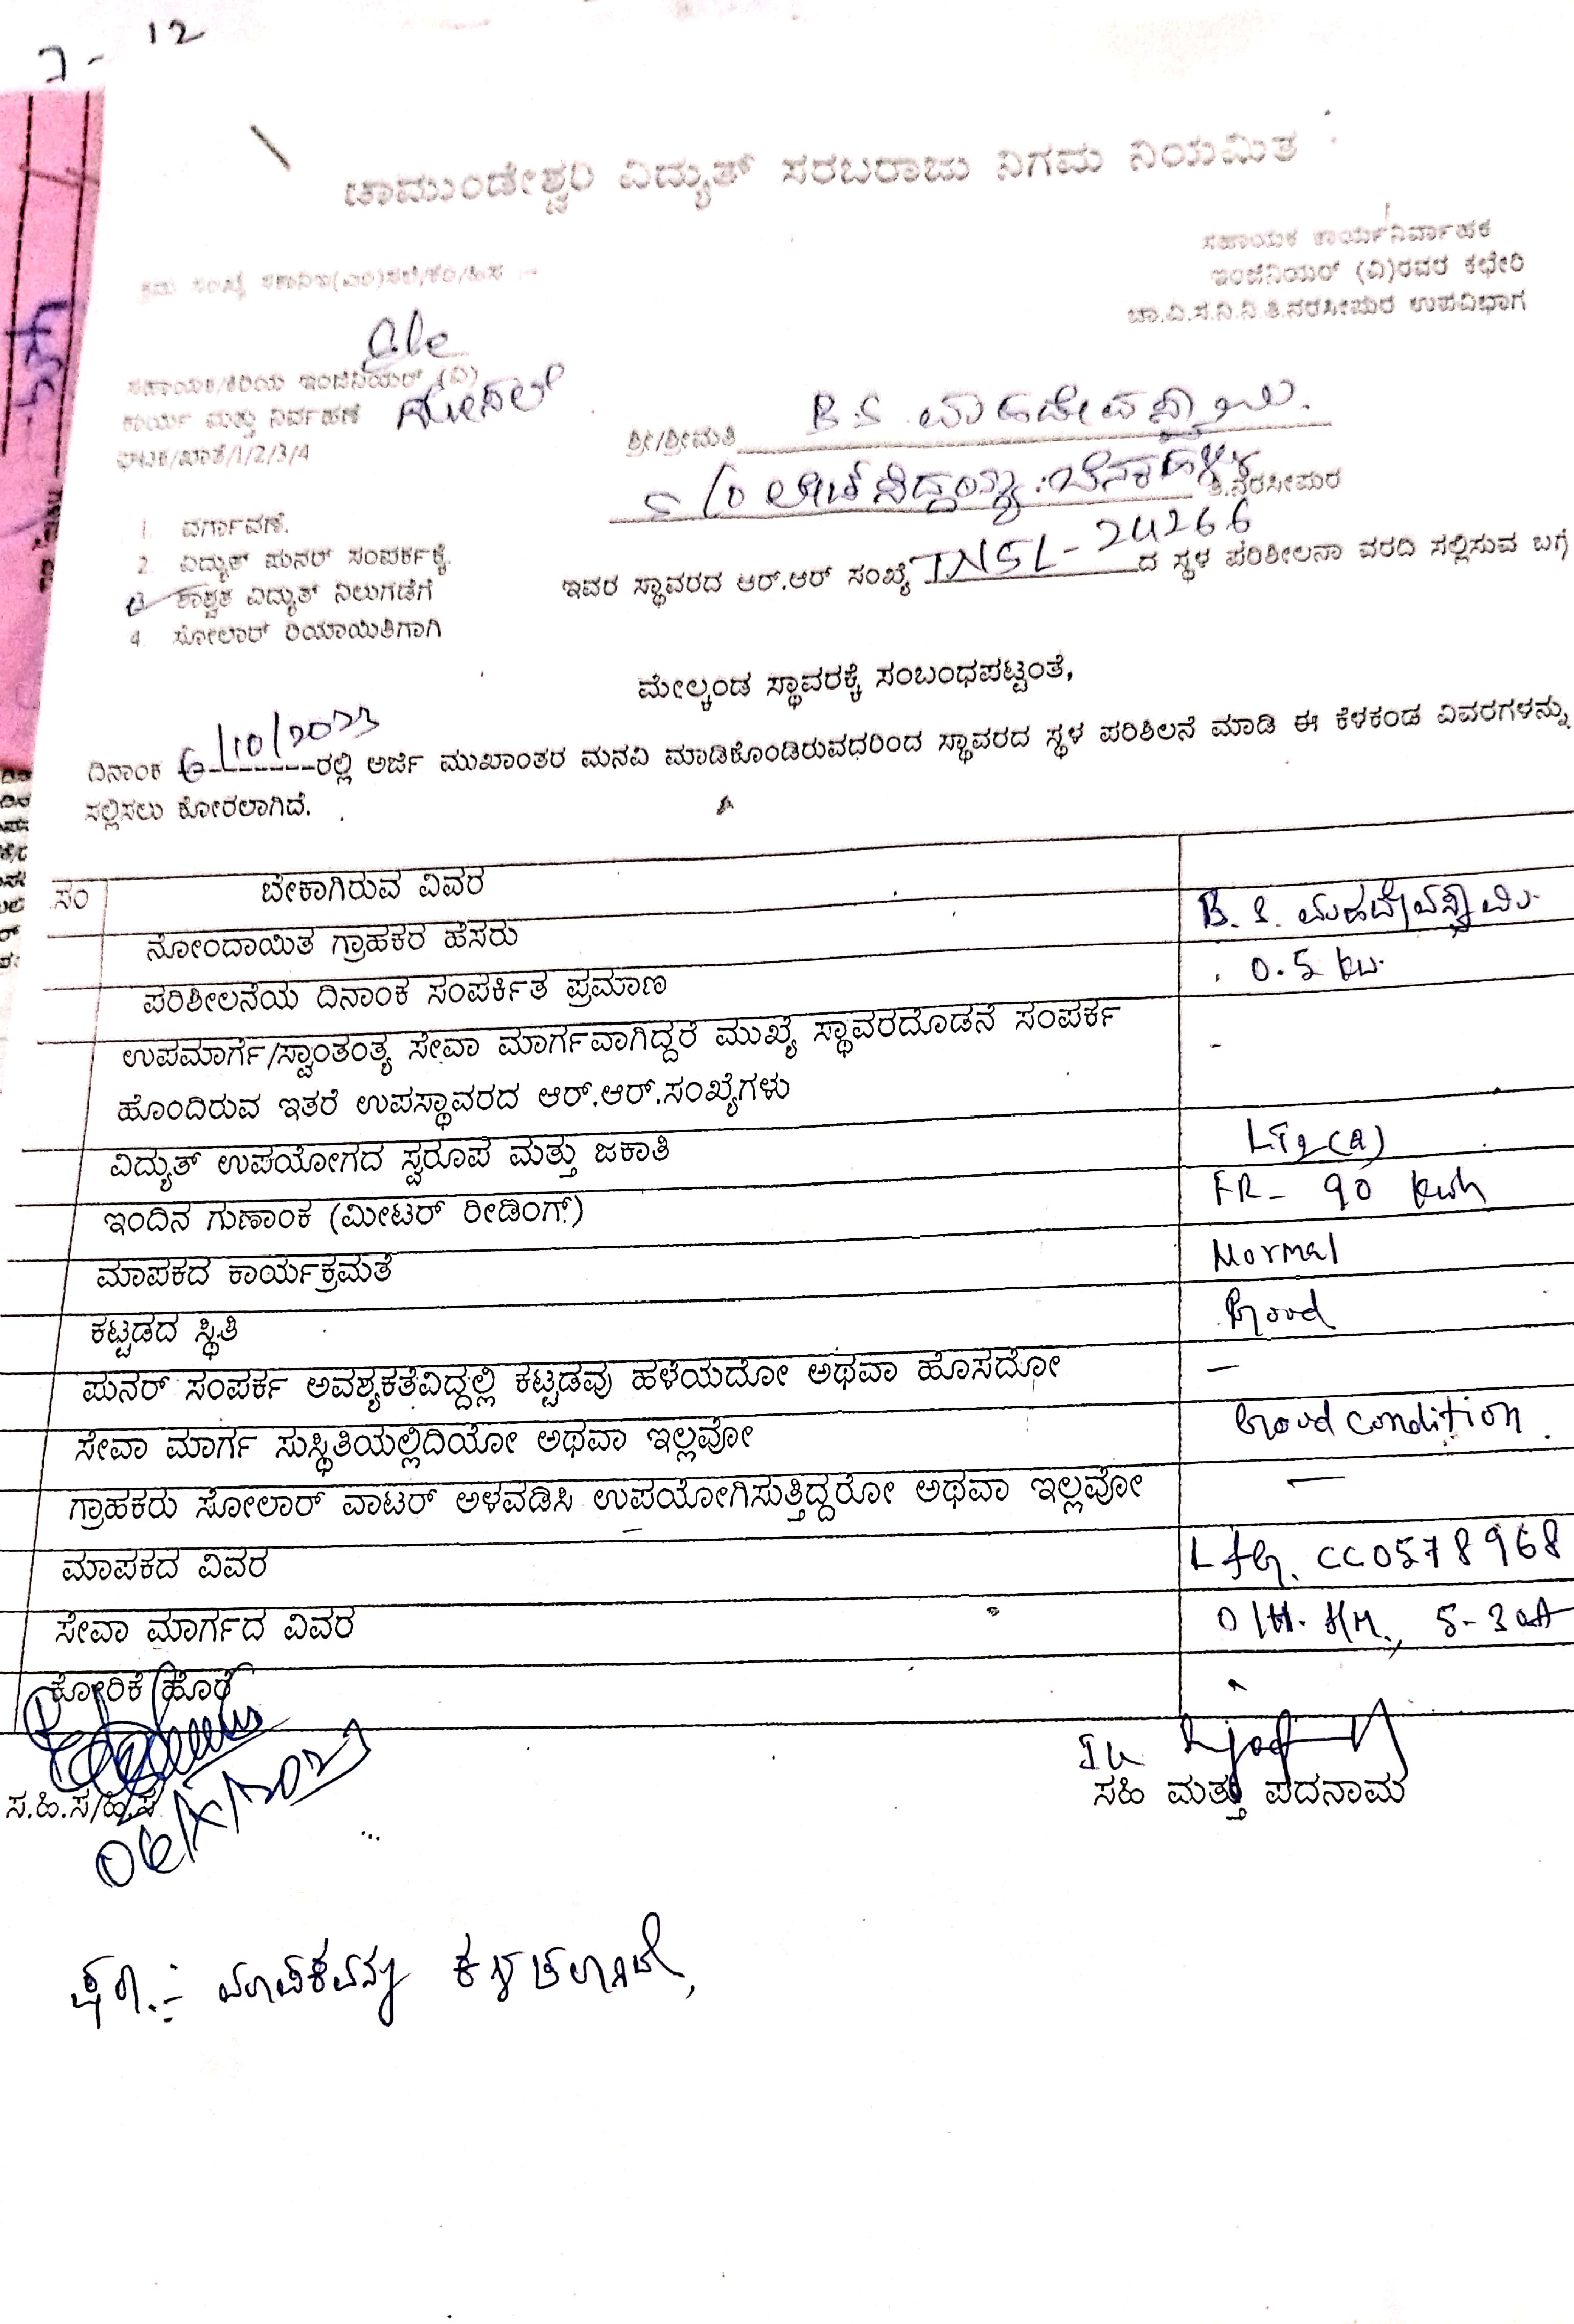 12
ಚಾಮುಂಡೇಶ್ವರಿ ವಿದ್ಯುತ್ ಸರಬರಾಜು ನಿಗಮ ನಿಯಮಿತ
ಸಹಾಯಕ ಕಾರ್ಯನಿರ್ವಾಹಕ
ಇಂಜಿನಿಯರ್ (ವಿ)ರವರ ಕಛೇರಿ
ಚಾ.ವಿ.ಸ.ನಿ.ನಿ.ತಿ.ನರಸೀಪುರ ಉಪವಿಭಾಗ
ಕ್ರಮ ಸಂಖ್ಯೆ
ಸಹಾಯಕ/ಕಿರಿಯ ಇಂಜಿನಿಯರ್ (ವಿ)
ಕಾರ್ಯ ಮತ್ತು ನಿರ್ವಹಣೆ
ಘಟಕ/ಶಾಖೆ/1/2/3/4
ಶ್ರೀ/ಶ್ರೀಮತಿ B.S. ಮಹದೇವಸ್ವಾಮಿ.
S/o ಲೇಟ್ ಸಿದ್ದಯ್ಯ ತಿ.ನರಸೀಪುರ
1. ವರ್ಗಾವಣೆ.
2. ವಿದ್ಯುತ್ ಪುನರ್ ಸಂಪರ್ಕಕ್ಕೆ.
3 ಶಾಶ್ವತ ವಿದ್ಯುತ್ ನಿಲುಗಡೆಗೆ
4. ಸೋಲಾರ್ ರಿಯಾಯಿತಿಗಾಗಿ
ಇವರ ಸ್ಥಾವರದ ಆರ್.ಆರ್ ಸಂಖ್ಯೆ TNSL-24266 ದ ಸ್ಥಳ ಪರಿಶೀಲನಾ ವರದಿ ಸಲ್ಲಿಸುವ ಬಗ್ಗೆ
ಮೇಲ್ಕಂಡ ಸ್ಥಾವರಕ್ಕೆ ಸಂಬಂಧಪಟ್ಟಂತೆ,
ದಿನಾಂಕ 6/10/2023 ರಲ್ಲಿ ಅರ್ಜಿ ಮುಖಾಂತರ ಮನವಿ ಮಾಡಿಕೊಂಡಿರುವಧರಿಂದ ಸ್ಥಾವರದ ಸ್ಥಳ ಪರಿಶಿಲನೆ ಮಾಡಿ ಈ ಕೆಳಕಂಡ ವಿವರಗಳನ್ನು
ಸಲ್ಲಿಸಲು ಕೋರಲಾಗಿದೆ.
ಸಂ ಬೇಕಾಗಿರುವ ವಿವರ
ನೋಂದಾಯಿತ ಗ್ರಾಹಕರ ಹೆಸರು B.S. ಮಹದೇವಸ್ವಾಮಿ
ಪರಿಶೀಲನೆಯ ದಿನಾಂಕ ಸಂಪರ್ಕಿತ ಪ್ರಮಾಣ 0.5 kw.
ಉಪಮಾರ್ಗೆ/ಸ್ವಾಂತಂತ್ಯ ಸೇವಾ ಮಾರ್ಗವಾಗಿದ್ದರೆ ಮುಖ್ಯೆ ಸ್ಥಾವರದೊಡನೆ ಸಂಪರ್ಕ -
ಹೊಂದಿರುವ ಇತರೆ ಉಪಸ್ಥಾವರದ ಆರ್.ಆರ್.ಸಂಖ್ಯೆಗಳು
ವಿದ್ಯುತ್ ಉಪಯೋಗದ ಸ್ವರೂಪ ಮತ್ತು ಜಕಾತಿ LT2(a)
ಇಂದಿನ ಗುಣಾಂಕ (ಮೀಟರ್ ರೀಡಿಂಗ್) FR- 90 kwh
ಮಾಪಕದ ಕಾರ್ಯಕ್ರಮತೆ Normal
ಕಟ್ಟಡದ ಸ್ಥಿತಿ Good
ಪುನರ್ ಸಂಪರ್ಕ ಅವಶ್ಯಕತೆವಿದ್ದಲ್ಲಿ ಕಟ್ಟಡವು ಹಳೆಯದೋ ಅಥವಾ ಹೊಸದೋ —
ಸೇವಾ ಮಾರ್ಗ ಸುಸ್ಥಿತಿಯಲ್ಲಿದಿಯೋ ಅಥವಾ ಇಲ್ಲವೋ Good condition.
ಗ್ರಾಹಕರು ಸೋಲಾರ್ ವಾಟರ್ ಅಳವಡಿಸಿ ಉಪಯೋಗಿಸುತ್ತಿದ್ದರೋ ಅಥವಾ ಇಲ್ಲವೋ —
ಮಾಪಕದ ವಿವರ L&G. CC0578968
ಸೇವಾ ಮಾರ್ಗದ ವಿವರ 5-30A
ಕೋರಿಕೆ ಹೊರೆ
ಸ.ಹಿ.ಸ/ಹಿ.ಸ
06/X/2023
ಸಹಿ ಮತ್ತು ಪದನಾಮ
ಮಾಪಕವನ್ನು